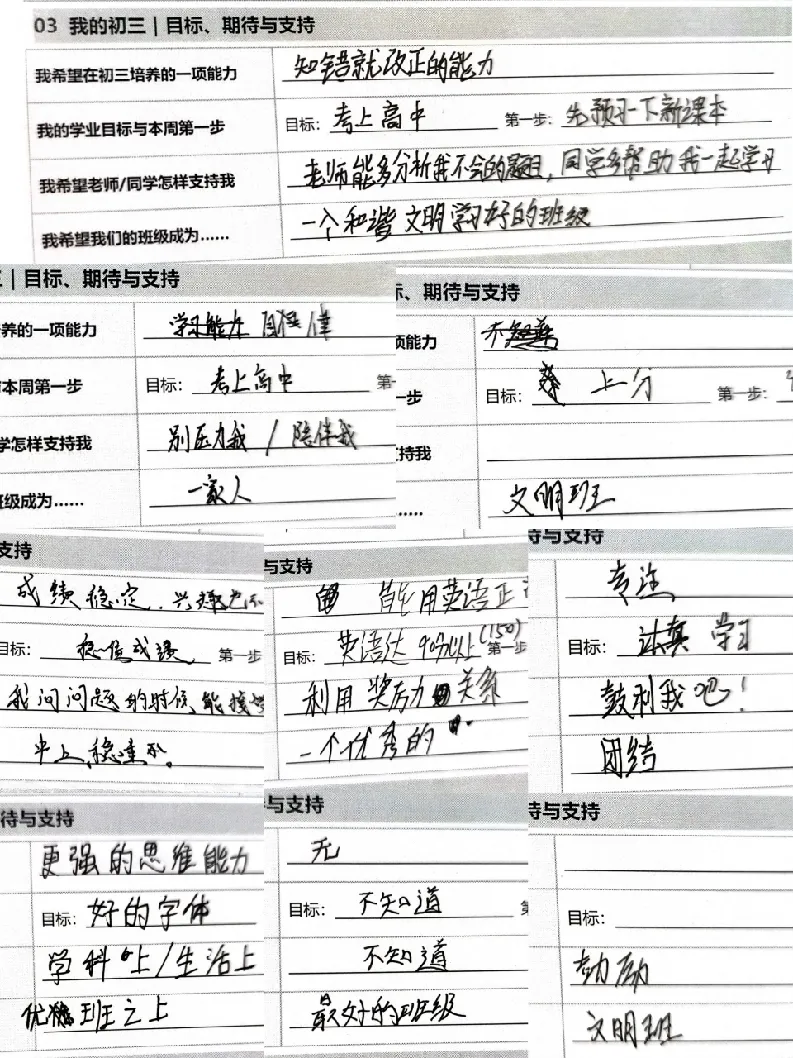 03 我的初三 | 目标、期待与支持
我希望在初三培养的一项能力 知错就改正的能力
我的学业目标与本周第一步 目标：考上高中 第一步：先预习一下新课本
我希望老师/同学怎样支持我 老师能多分析我不会的题目，同学多帮助我一起学习
我希望我们的班级成为…… 一个和谐文明学习好的班级
| 目标、期待与支持
养的一项能力 学习能力 自律
本周第一步 目标：考上高中 第一
学怎样支持我 别压力我 / 陪伴我
班级成为…… 一家人
示、期待与支持
项能力
一步 目标： 上分 第一步：
支持我
…… 文明班
支持
成绩稳定
目标： 稳住成绩 第一步
我问问题的时候能
与支持
能用英语正
目标：英语达90分以上(150) 第一步
利用奖励关系
一个优秀的
待与支持
专注
目标：认真 学习
鼓利我吧！
团结
待与支持
更强的思维能力
目标：好的字体
学科上/生活上
班之上
与支持
无
目标：不知道 第
不知道
最好的班级
待与支持
目标：
文明班